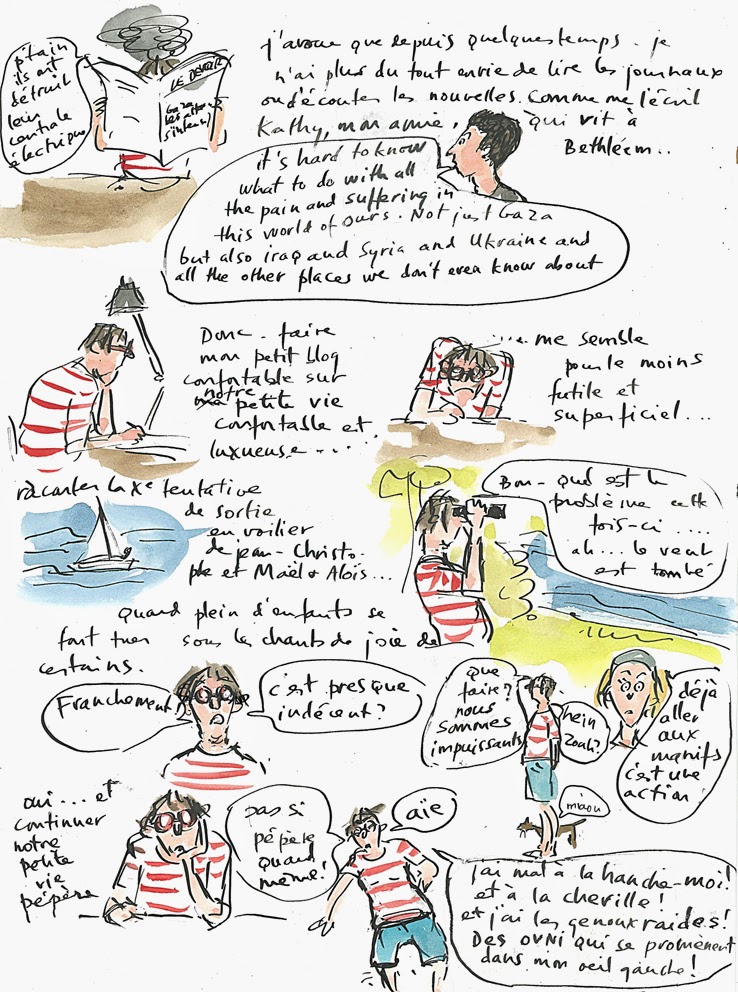 p'tain
ils ont
détruit
leur
centrale
électrique
LE DEVOIR
Gaza
les attaques
s'intens
j'avoue que depuis quelques temps. je
n'ai plus du tout envie de lire les journaux
ou d'écouter les nouvelles. Comme me l'écrit
Kathy, mon amie, qui vit à
Bethléem..
it's hard to know
what to do with all
the pain and suffering in
this world of ours. Not just Gaza
but also iraq and Syria and Ukraine and
all the other places we don't even know about
Donc. faire
mon petit blog
confortable sur
notre
petite vie
confortable et
luxueuse....
.... me semble
pour le moins
futile et
superficiel...
raconter la Xe tentative
de sortie
en voilier
de Jean-Christo
phe et Maël & Aloïs...
Bon - quel est le
problème cette
fois-ci ....
ah... le vent
est tombé
quand plein d'enfants se
font tuer sous les chants de joie de
certains.
Franchement
c'est presque
indécent?
que
faire?
nous
sommes
impuissants
hein
Zoah?
miaou
déjà
aller
aux
manifs
c'est une
action!
oui... et
continuer
notre
petite
vie
pépère
pas si
pépère
quand
même!
aïe
j'ai mal à la hanche-moi!
et à la cheville!
et j'ai les genoux raides!
Des OVNI qui se promènent
dans mon oeil gauche!